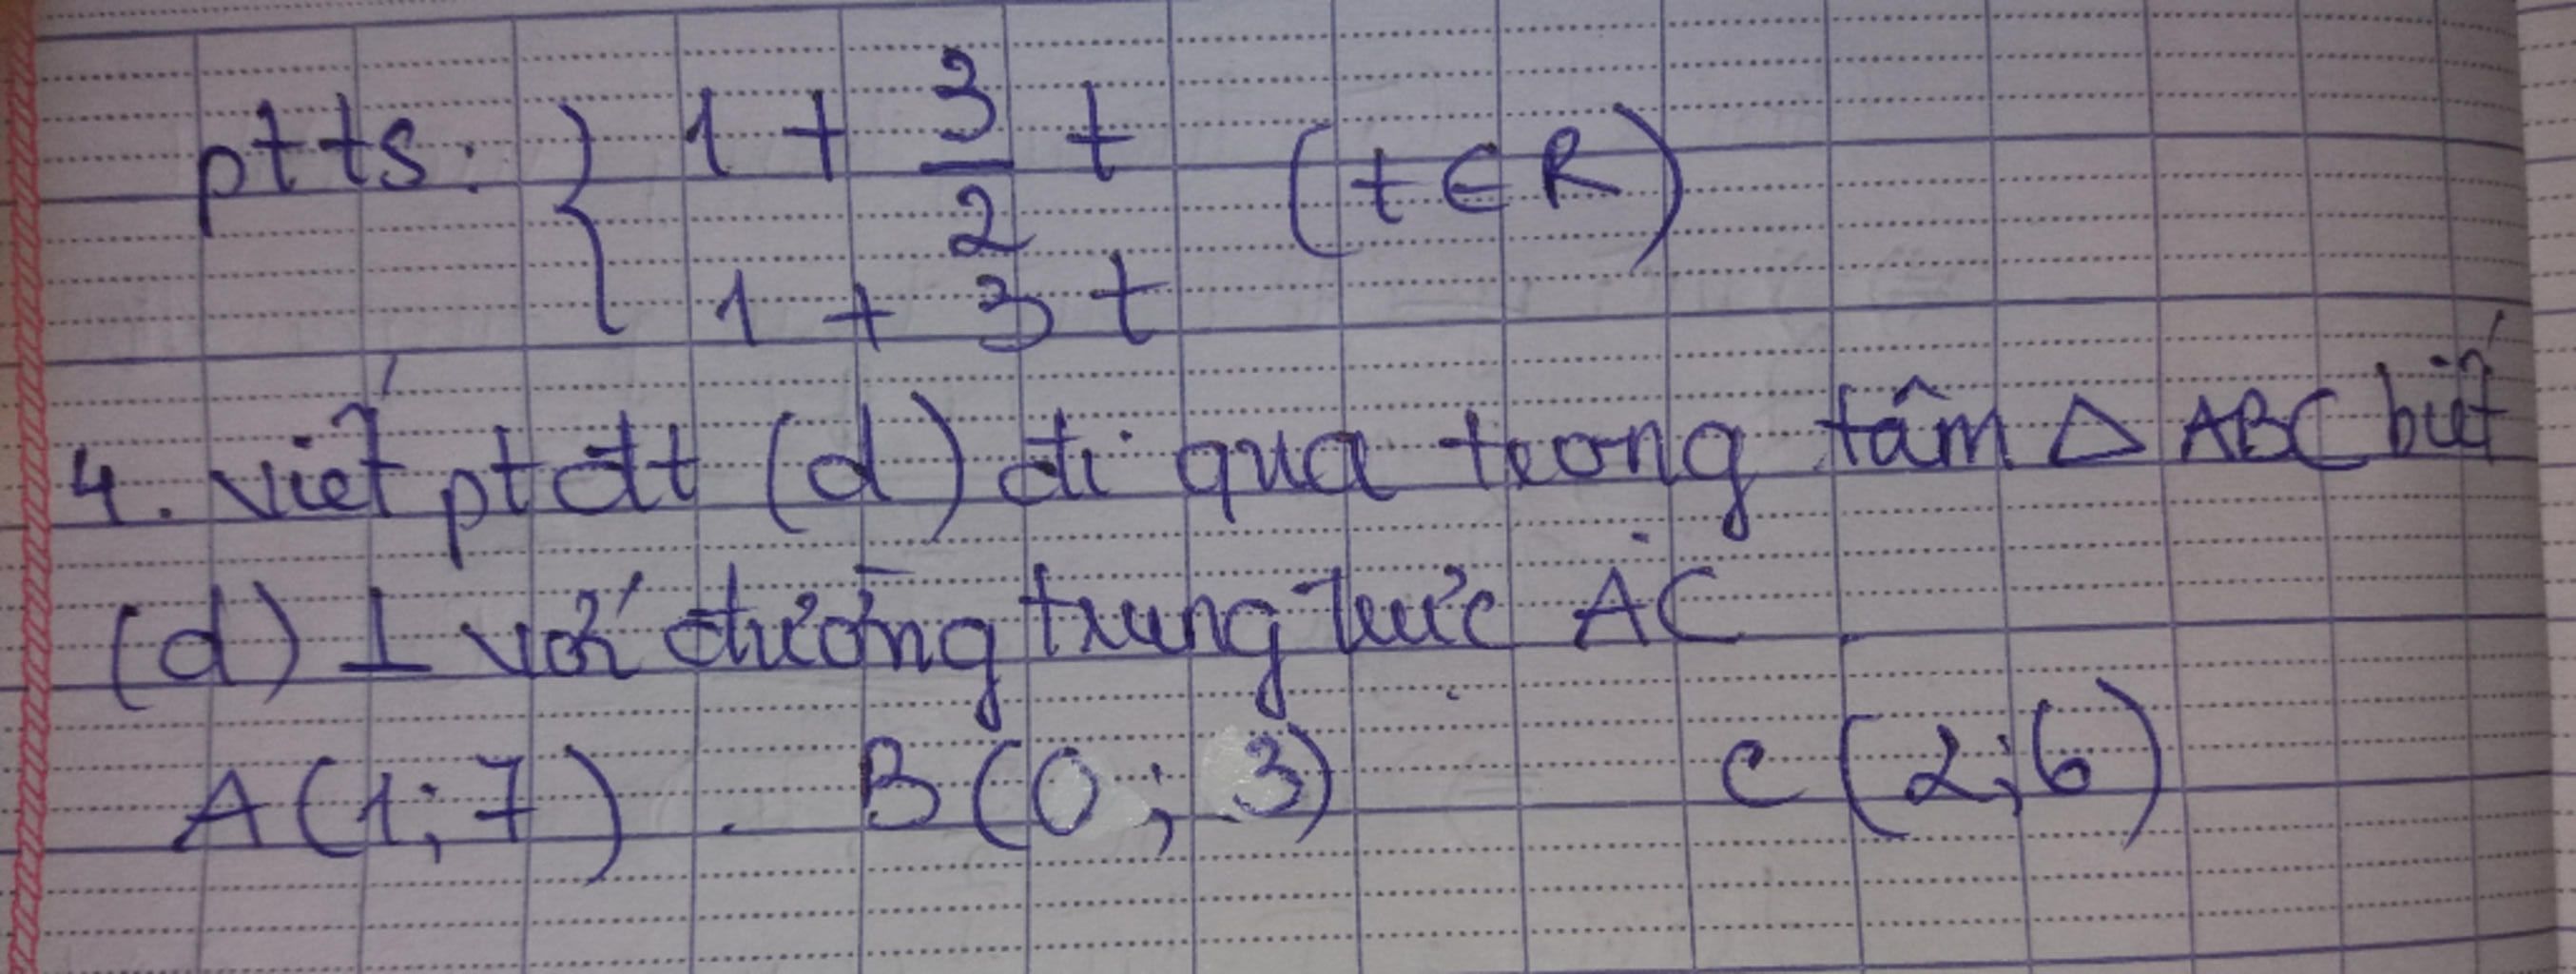 ptts: { 1 + 3/2 t (t ∈ R)
1 + 3t
4. viết pt đt (d) đi qua trọng tâm △ ABC biết
(d) ⊥ với đường trung trực AC
A(1;7) . B(0; 3) C(2;6)